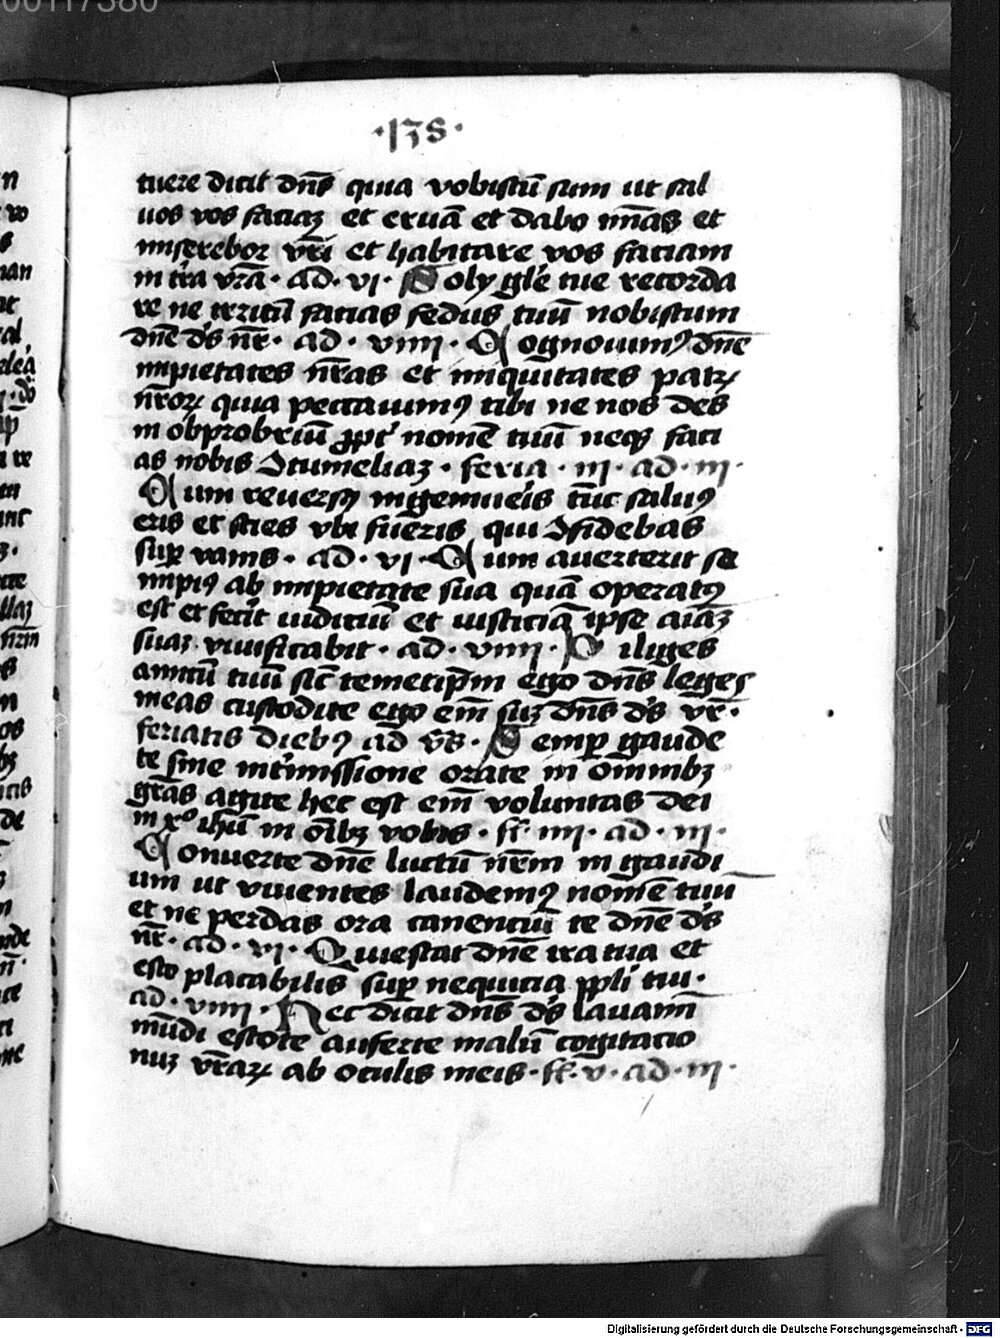 00117380
·138·
tuere dicit dn̄s quia vobiscū sum ut sal
uos vos faciaꝫ et eruā et dabo mīas et
miserebor vr̄i et habitare vos faciam
in t̄ra vr̄a · ad · vi · Soly gl̄e tue recorda
re ne irritū facias fedus tuū nobiscum
dn̄e ds̄ nr̄ · ad · viiii · Cognouimꝰ dn̄e
impietates nr̄as et iniquitates patꝝ
nr̄oꝝ quia peccauimꝰ tibi ne nos des
in obprobriū ꝓpt̄ nomē tuū neqꝫ faci
as nobis ꝯtumeliaꝫ · feria · iii · ad · iii ·
Cum reuersꝰ ingemueris tūc saluꝰ
eris et scies vbi fueris qui ꝯfidebas
suꝑ vanis · ad · vi · Cum auerterit se
impiꝰ ab impietate sua quā operatꝰ
est et fecit iudiciū et iusticiā ipse aīaꝫ
suaꝫ viuificabit · ad · viiii · Diliges
amicū tuū sic̄ temetip̄m ego dn̄s leges
meas custodite ego em̄ suꝫ dn̄s ds̄ vr̄ ·
feriatis diebꝰ ad vs̄ · Semꝑ gaude
te sine int̄missione orate in om̄ibꝫ
gr̄as agite hec est em̄ voluntas dei
in xp̄o ih̄u in oībꝫ vobis · fr̄ · iiii · ad · iii ·
Conuerte dn̄e luctū nr̄m in gaudi
um ut viuentes laudemꝰ nomē tuū
et ne perdas ora canenciū te dn̄e ds̄
nr̄ · ad · vi · Quiescat dn̄e ira tua et
esto placabilis suꝑ nequicia ppli tui ·
ad · viiii · Hec dicit dn̄s ds̄ lauaminī
mūdi estote auferte malū cogitacio
nuꝫ vr̄aꝝ ab oculis meis · fr̄ · v · ad · iii ·
Digitalisierung gefördert durch die Deutsche Forschungsgemeinschaft - DFG